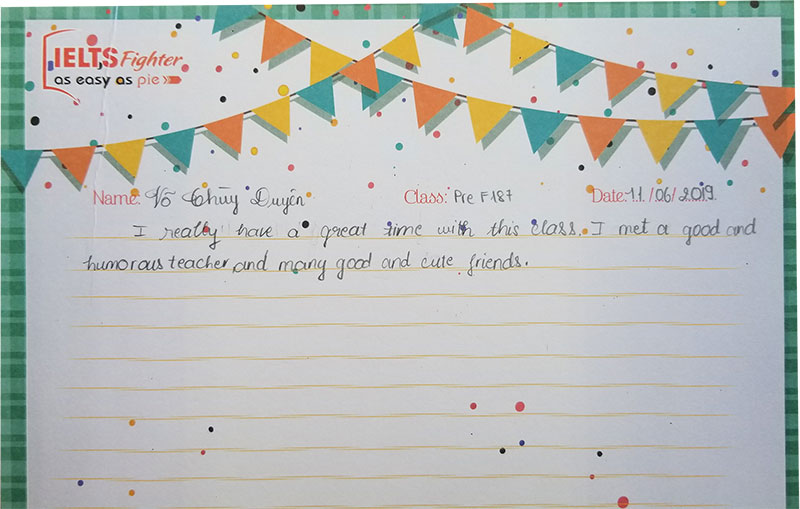 IELTS Fighter
as easy as pie
Name: Võ Thùy Duyên Class: Pre F187 Date: 11/06/2019
I really have a great time with this class. I met a good and
humorous teacher and many good and cute friends.